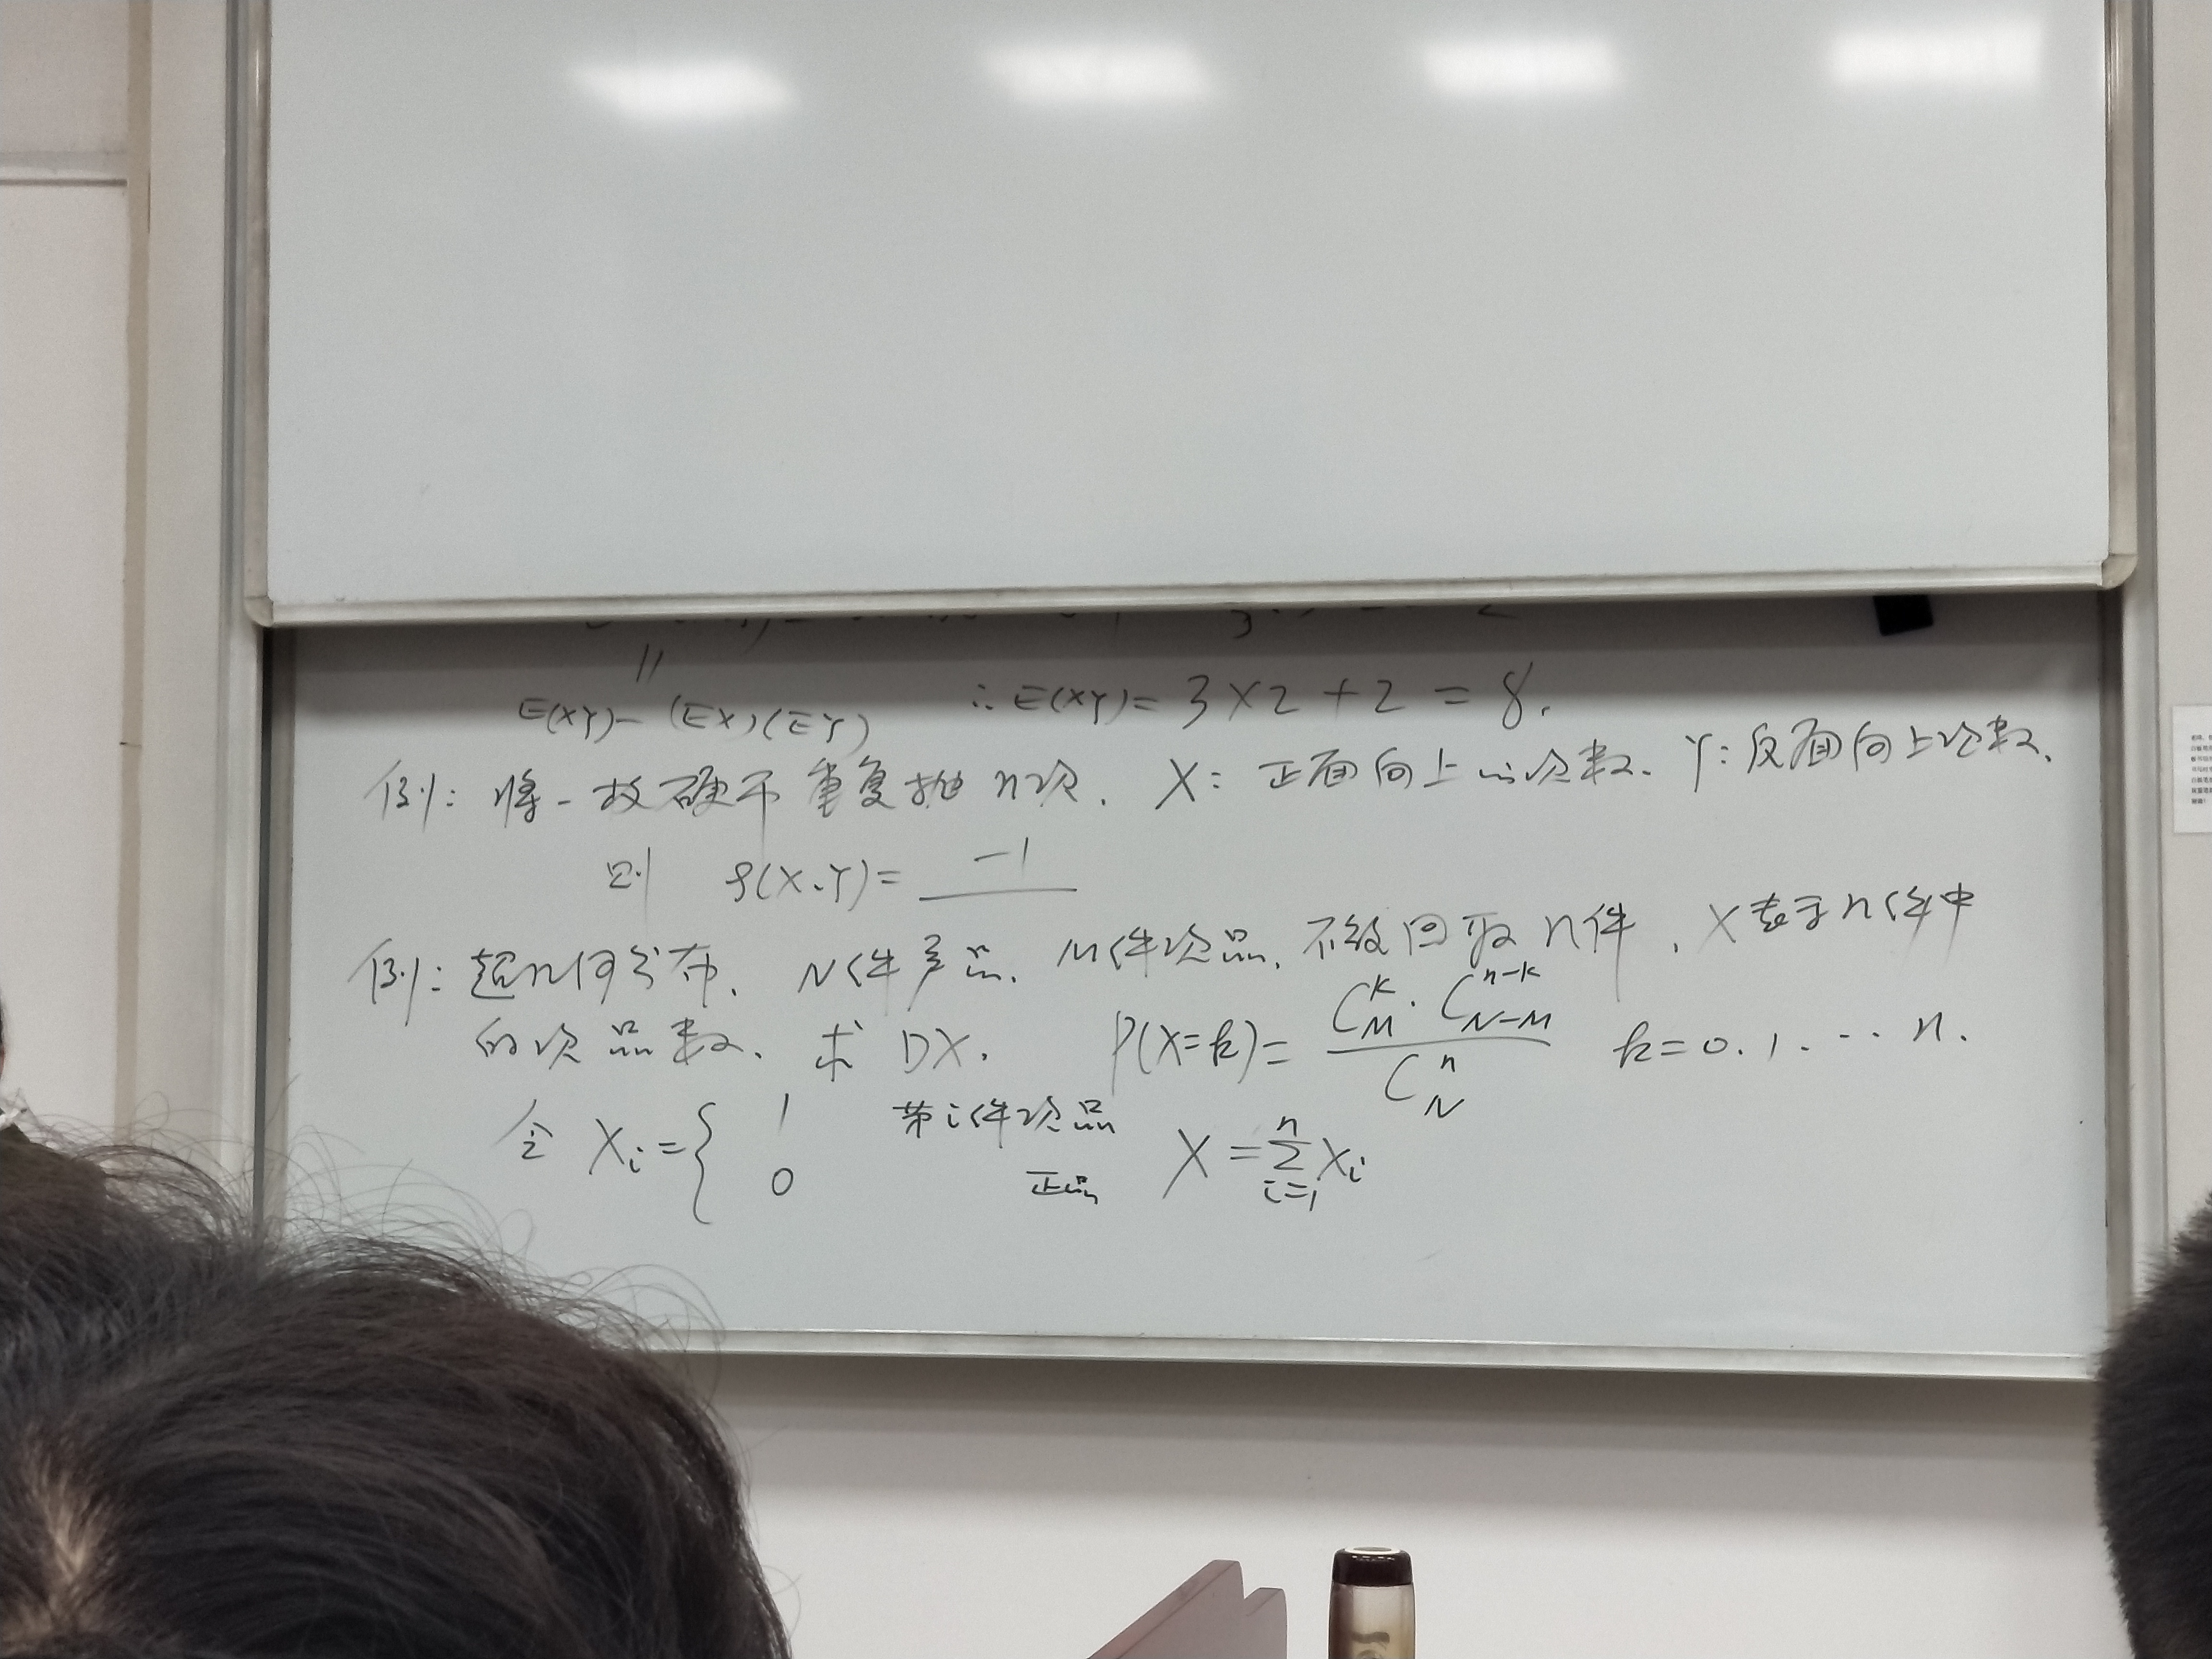 E(XY)-(EX)(EY) ∴E(XY)=3×2+2=8.
例: 将一枚硬币重复抛n次. X: 正面向上的次数. Y: 反面向上次数.
则 ρ(X,Y)= -1
例: 超几何分布. N件产品. M件次品. 不放回取n件. X表示n件中
的次品数. 求DX. P(X=k)= C_M^k · C_{N-M}^{n-k} / C_N^n k=0.1.…n.
令 X_i={ 1 第i件次品 X=∑_{i=1}^n X_i
0 正品